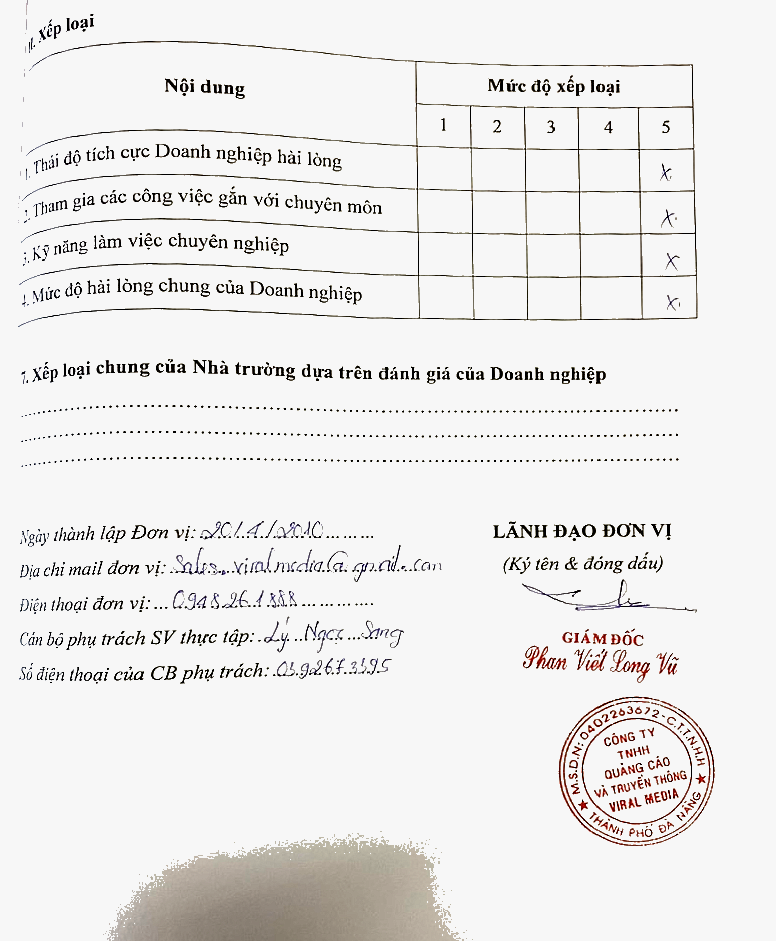 II. Xếp loại
Nội dung Mức độ xếp loại
1 2 3 4 5
1. Thái độ tích cực Doanh nghiệp hài lòng X
2. Tham gia các công việc gắn với chuyên môn X
3. Kỹ năng làm việc chuyên nghiệp X
4. Mức độ hài lòng chung của Doanh nghiệp X
7. Xếp loại chung của Nhà trường dựa trên đánh giá của Doanh nghiệp
Ngày thành lập Đơn vị: 20/4/2010
Địa chỉ mail đơn vị: Sales.viralmedia@gmail.com
Điện thoại đơn vị: 0948.261.888
Cán bộ phụ trách SV thực tập: Lý Ngọc Sang
Số điện thoại của CB phụ trách: 0392673595
LÃNH ĐẠO ĐƠN VỊ
(Ký tên & đóng dấu)
GIÁM ĐỐC
Phan Viết Long Vũ
M.S.D.N: 0402263672-C.T.T.N.H.H
CÔNG TY
TNHH
QUẢNG CÁO
VÀ TRUYỀN THÔNG
VIRAL MEDIA
★ THÀNH PHỐ ĐÀ NẴNG ★